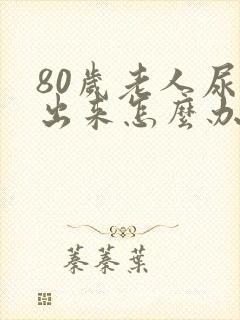 80歲老人尿
出来怎麼办
蓁蓁葉